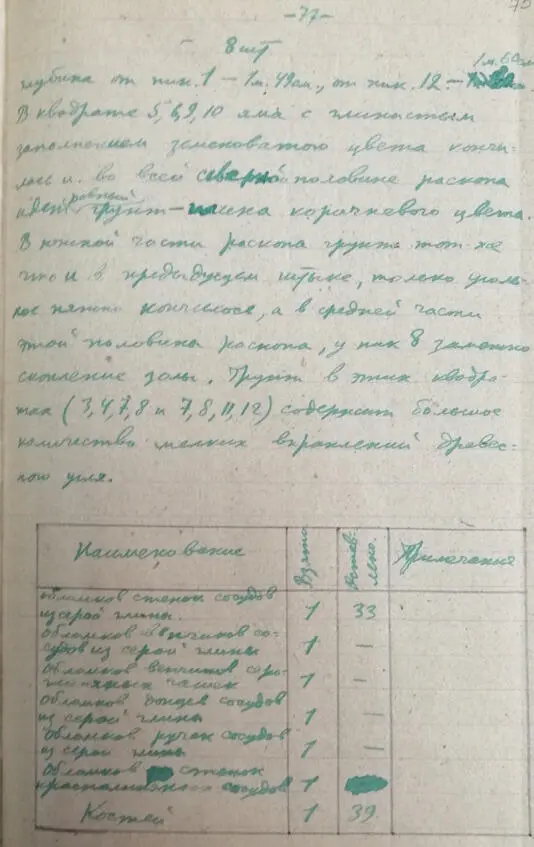 -77-
8 шт
1 м. 60 см
глубина от пик. 1 – 1м. 49 см., от пик. 12. –
В квадрате 5, 6, 9, 10 яма с глинистым
заполнением зеленоватого цвета кончи-
лась и во всей северной половине раскопа
идет ровный грунт – глина коричневого цвета.
В южной части раскопа грунт тот же
что и в предыдущем штыке, только уголь-
ное пятно кончилось, а в средней части
этой половины раскопа, у пик 8 заметно
скопление золы. Грунт в этих квадра-
тах (3,4,7,8 и 7,8,11,12) содержит большое
количество мелких вкраплений древес-
ного угля.
Наименование Взято Оставлено. Примечание
обломков стенок сосудов
из серой глины. 1 33
обломков венчиков со-
судов из серой глины 1 –
обломков венчиков серо-
глиняных чашек 1 –
обломков донцев сосудов
из серой глины 1 –
обломков ручек сосудов
из серой глины 1 –
обломков стенок
красноглиняных сосудов 1
Костей 1 39